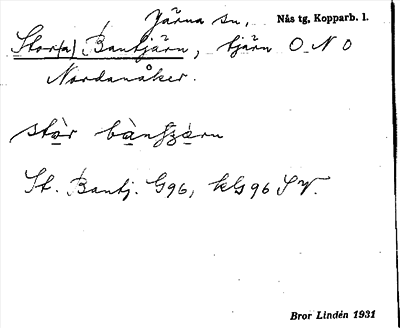 Järna sn, Nås tg, Kopparb. l.
Stor(a) Bantjärn, tjärn O N O
Nordanåker.
stòr
St. Bantj. G96, kls 96 SV.
Bror Lindén 1931